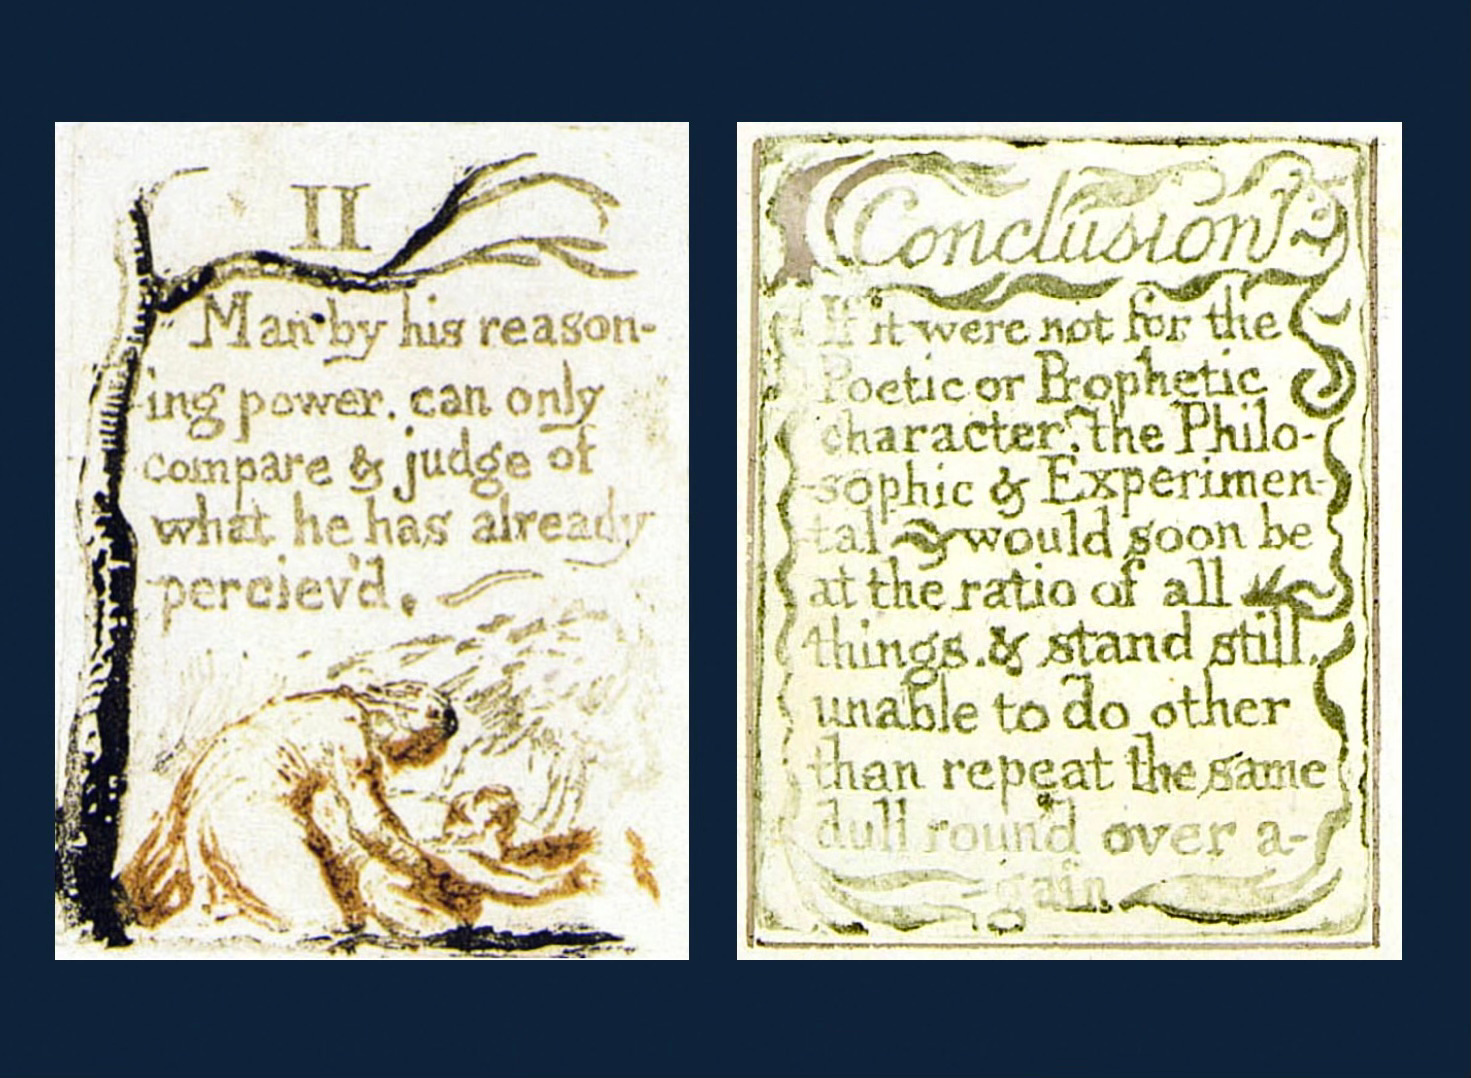 II
Man by his reason-
ing power. can only
compare & judge of
what he has already
perciev'd.
Conclusion
If it were not for the
Poetic or Prophetic
character, the Philo-
sophic & Experimen-
tal would soon be
at the ratio of all
things. & stand still,
unable to do other
than repeat the same
dull round over a-
gain.